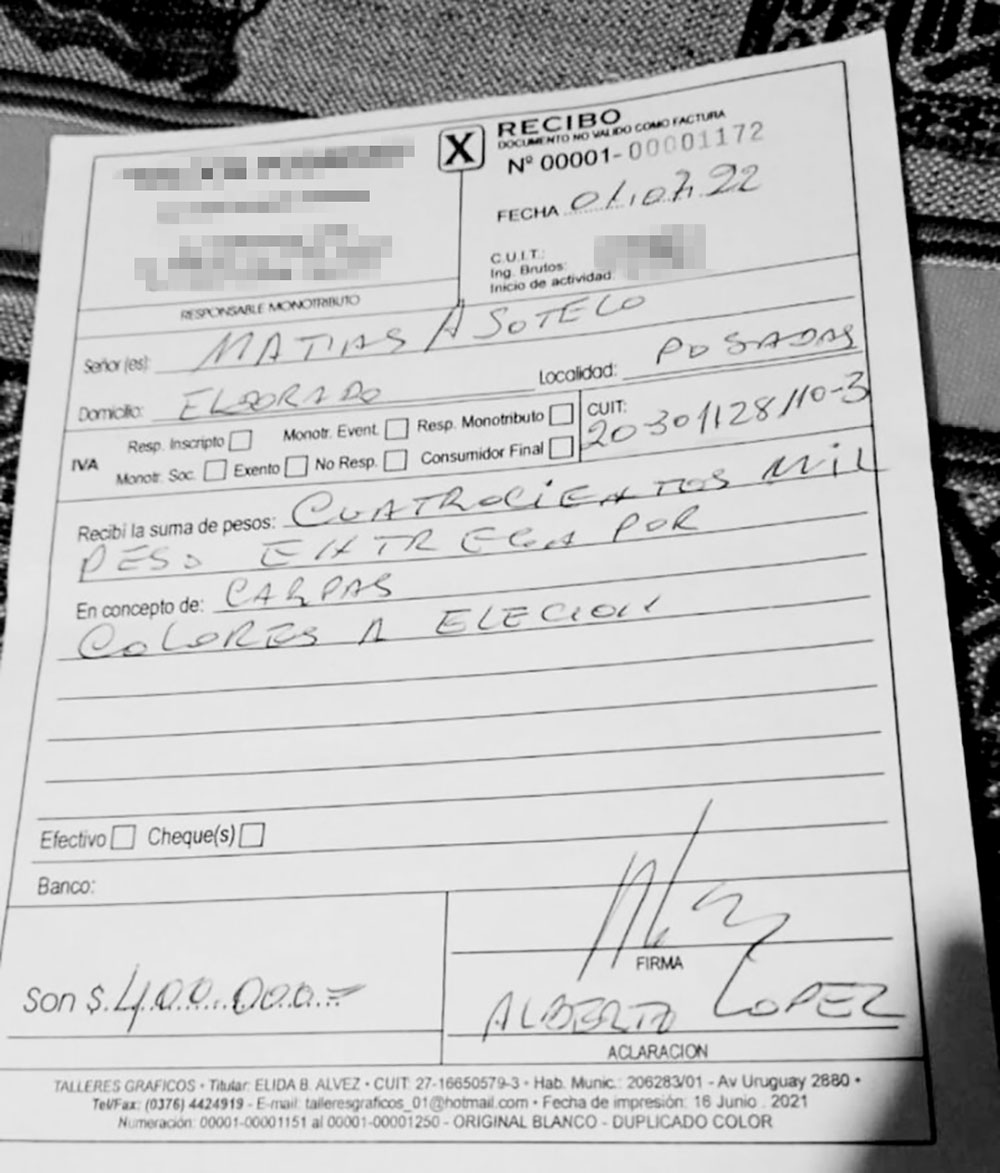 X
RECIBO
DOCUMENTO NO VALIDO COMO FACTURA
Nº 00001-00001172
FECHA 01.07.22
C.U.I.T.:
Ing. Brutos:
Inicio de actividad
RESPONSABLE MONOTRIBUTO
Señor (es): MATIAS A SOTELO
Domicilio: ELDORADO Localidad: POSADAS
IVA Resp. Inscripto Monotr. Event. Resp. Monotributo CUIT:
Monotr. Soc. Exento No Resp. Consumidor Final 20301128110-3
Recibí la suma de pesos: CUATROCIENTOS MIL
PESO ENTREGA POR
En concepto de: CARPAS
COLORES A ELECION
Efectivo Cheque(s)
Banco:
Son $ 400.000.=
FIRMA
ALBERTO LOPEZ
ACLARACION
TALLERES GRAFICOS • Titular: ELIDA B. ALVEZ • CUIT: 27-16650579-3 • Hab. Munic.: 206283/01 - Av Uruguay 2880 •
Tel/Fax: (0376) 4424919 - E-mail: talleresgraficos_01@hotmail.com • Fecha de impresión: 16 Junio . 2021
Numeración: 00001-00001151 al 00001-00001250 - ORIGINAL BLANCO - DUPLICADO COLOR